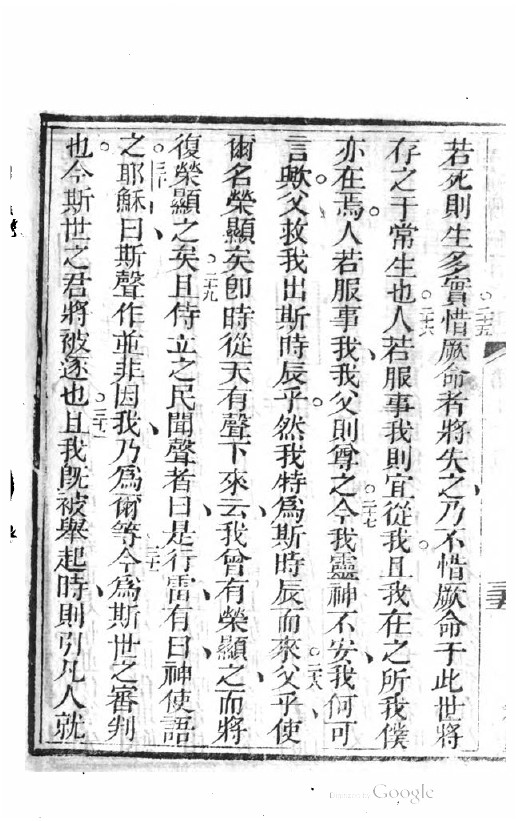 若死則生多實二十五惜厥命者將失之乃不惜厥命于此世將
存之于常生也二十六人若服事我則宜從我且我在之所我僕
亦在焉人若服事我我父則尊之二十七今我靈神不安我何可
言歟父救我出斯時辰乎然我特為斯時辰而來二十八父乎使
爾名榮顯矣即時從天有聲下來云我曾有榮顯之而將
復榮顯之矣二十九且侍立之民聞聲者曰是行雷有曰神使語
之三十耶穌曰斯聲作並非因我乃為爾等三十一今為斯世之審判
也今斯世之君將被逐也三十二且我既被舉起時則引凡人就
Google